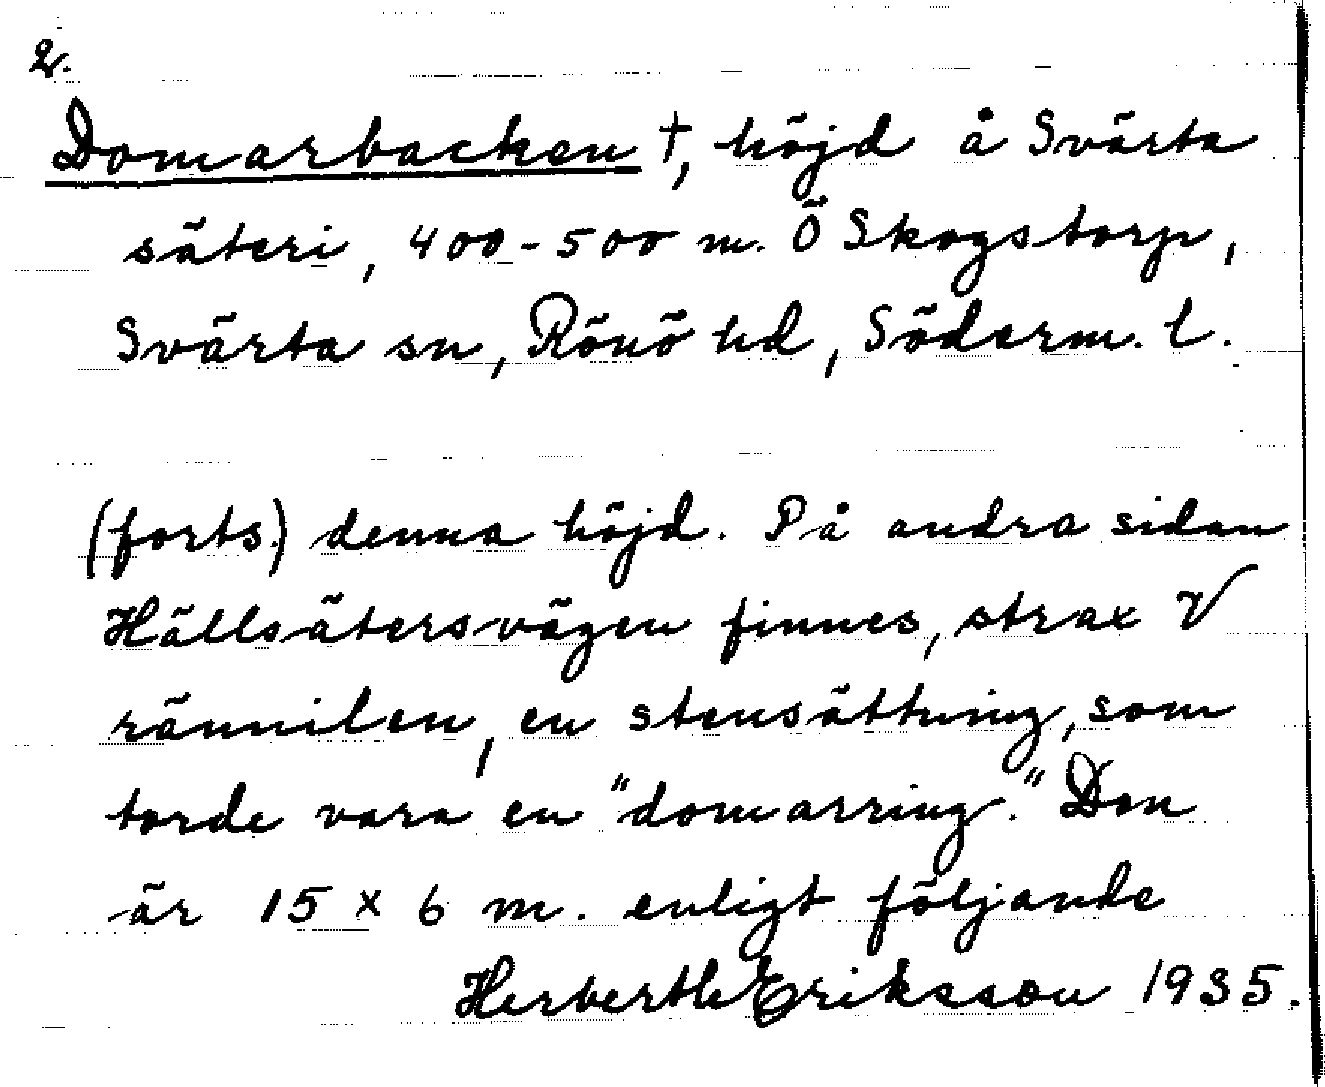 2.
Domarbacken †, höjd å Svärta
säteri, 400-500 m. Ö Skogstorp,
Svärta sn, Rönö hd, Söderm. l.
(forts.) denna höjd. På andra sidan
Hällsätersvägen finnes, strax V
rännilen, en stensättning, som
torde vara en "domarring." Den
är 15 x 6 m. enligt följande
Eriksson 1935.